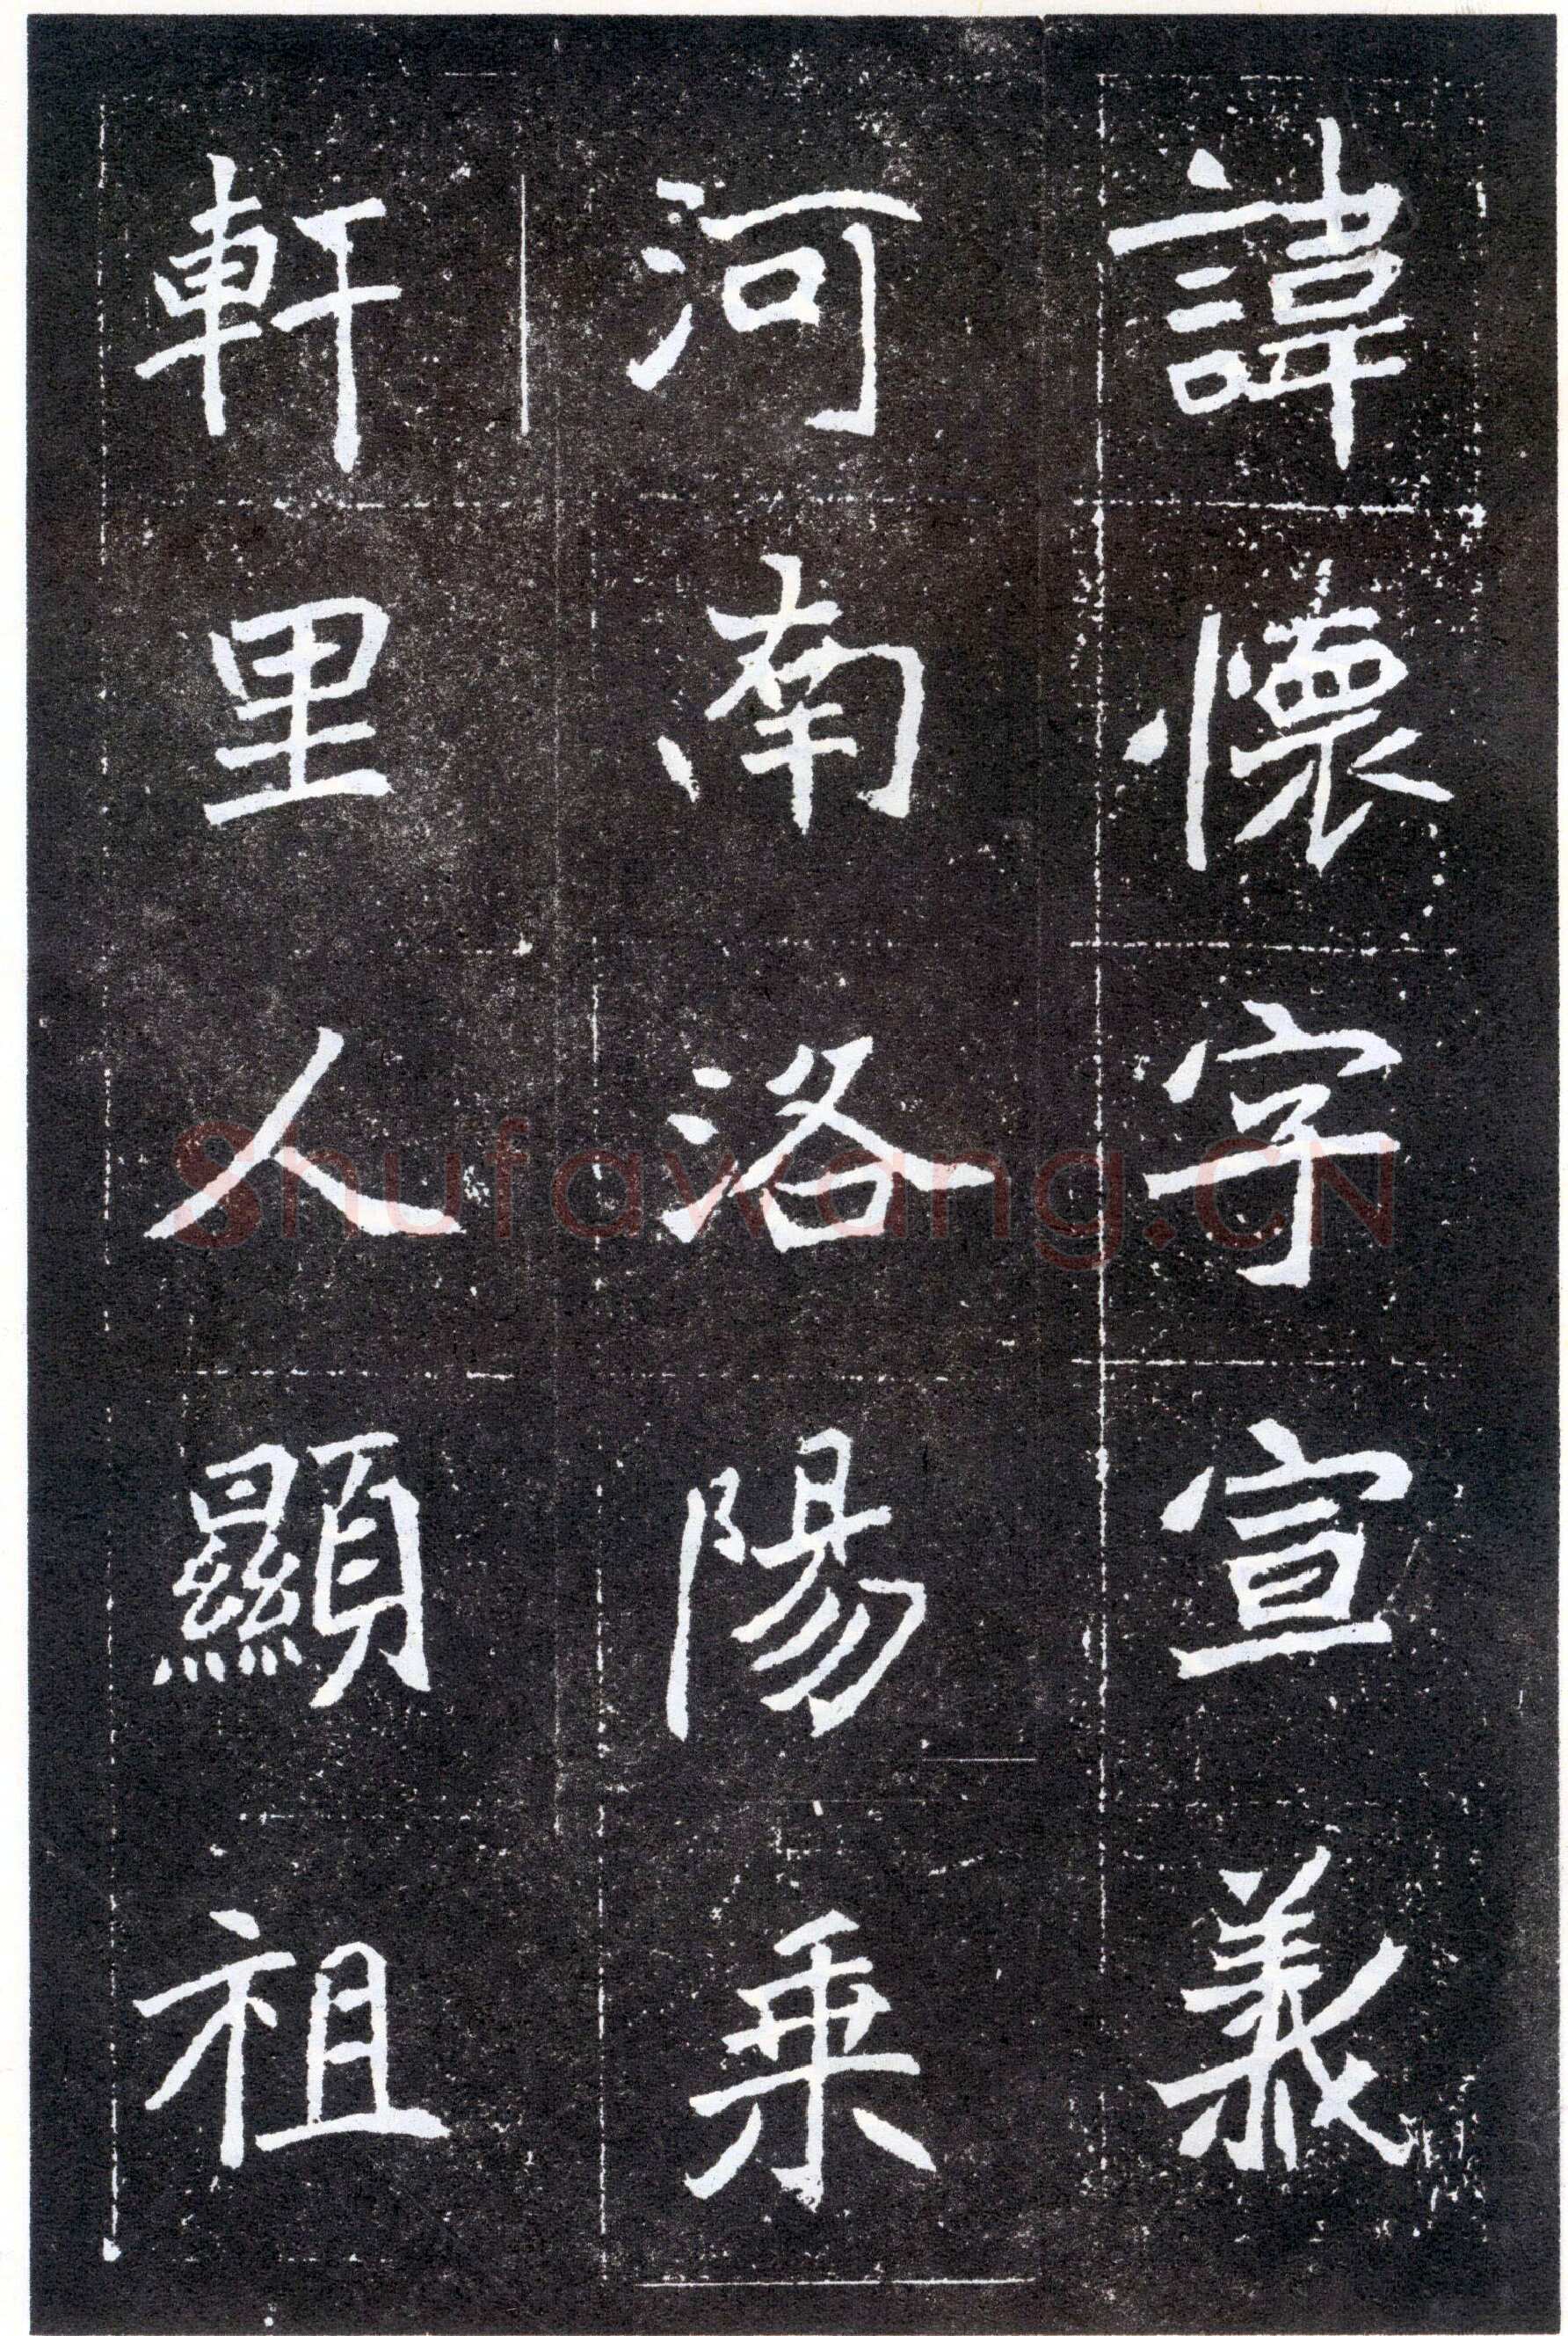 諱懷字宣義
河南洛陽乘
軒里人顯祖
Shufawang.CN